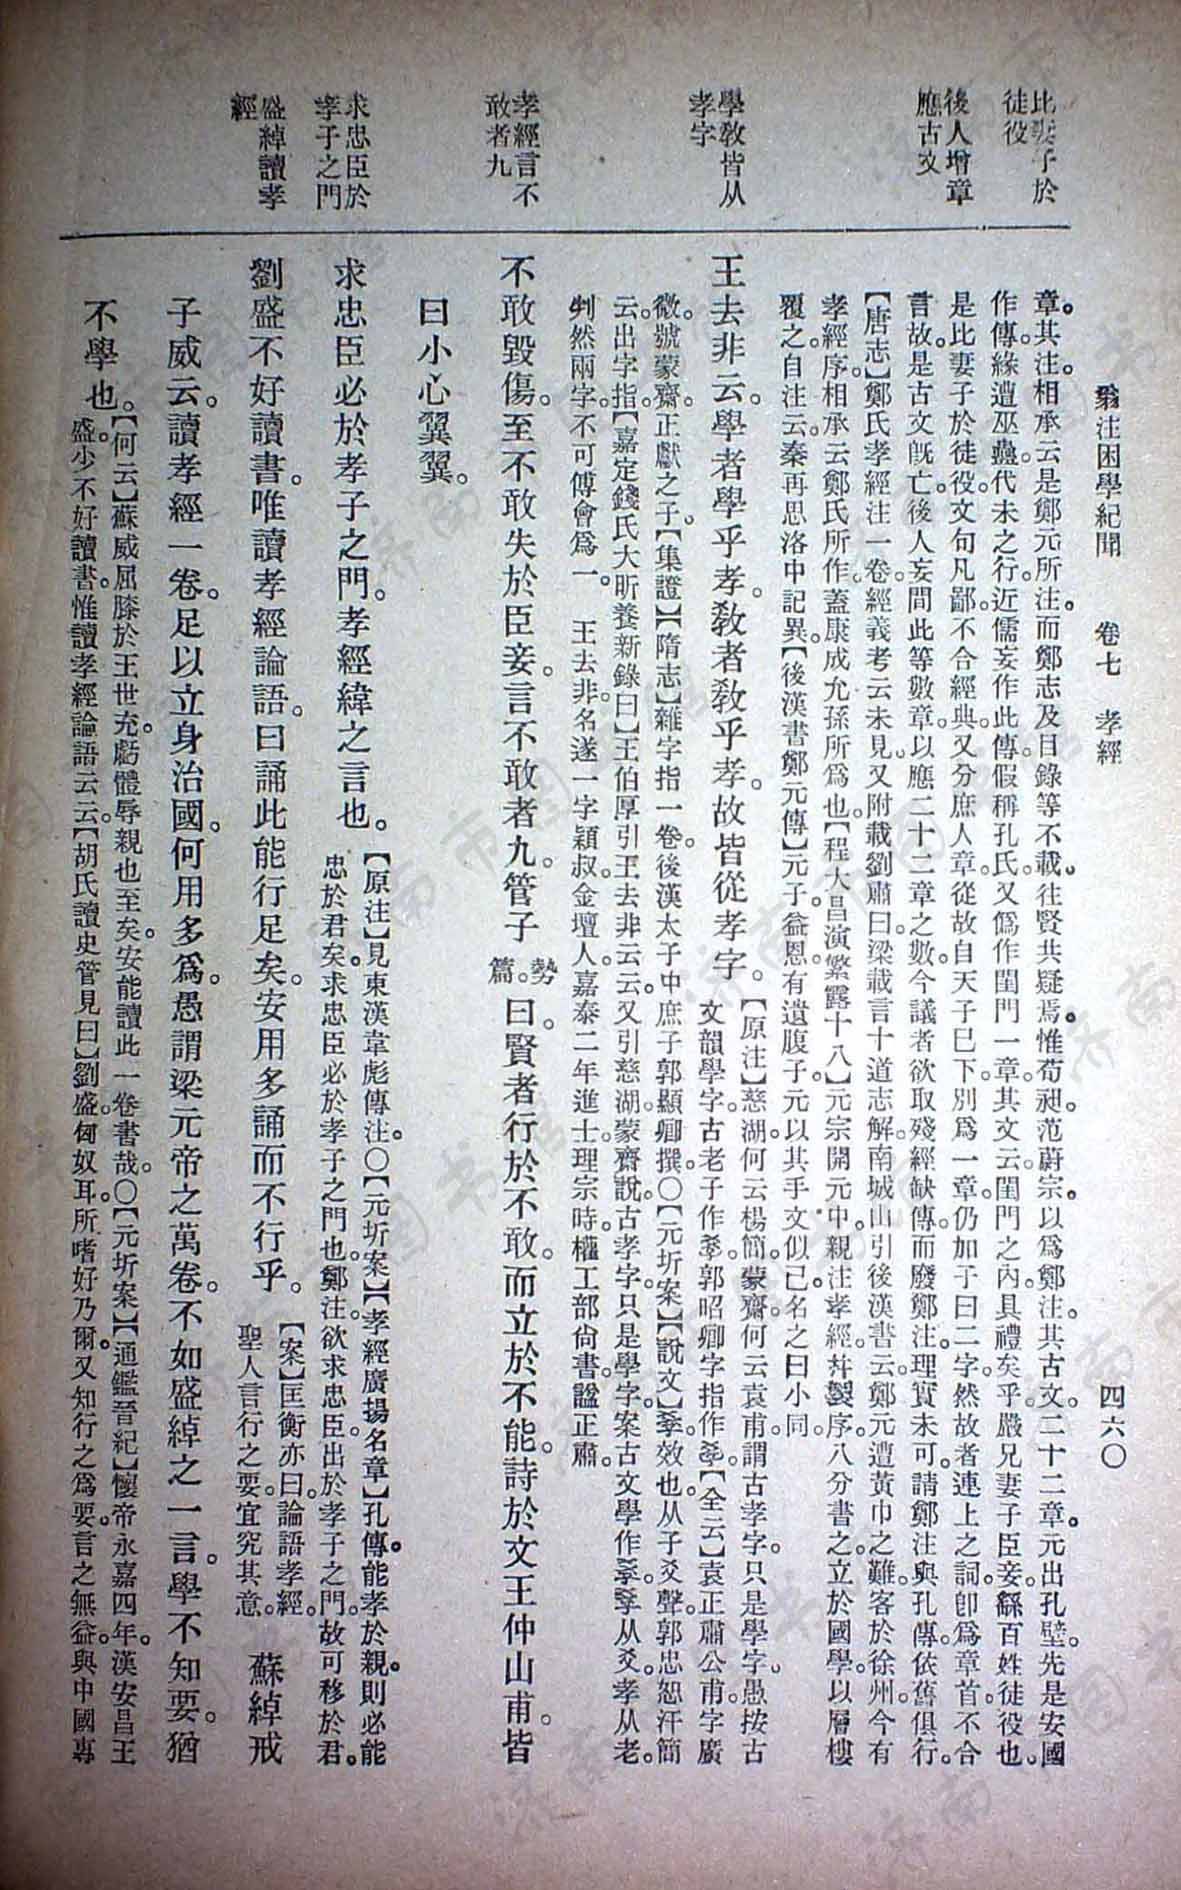 翁注困學紀聞 卷七 孝經 四六〇
比妻子於
徒役
後人增章
應古文
學教皆从
孝字
孝經言不
敢者九
求忠臣於
孝子之門
盛綽讀孝
經
章。其注。相承云是鄭元所注。而鄭志及目錄等不載。往賢共疑焉。惟荀昶。范蔚宗。以爲鄭注。其古文。二十二章。元出孔壁。先是安國
作傳。緣遭巫蠱。代未之行。近儒妄作此傳。假稱孔氏。又僞作閨門一章。其文云。閨門之內。具禮矣乎。嚴兄妻子臣妾。繇百姓徒役也。
是比妻子於徒役。文句凡鄙。不合經典。又分庶人章。從故自天子已下。別爲一章。仍加子曰二字。然故者。連上之詞。卽爲章首。不合
言故。是古文旣亡。後人妄間此等數章。以應二十二章之數。今議者欲取殘經缺傳。而廢鄭注。理實未可。請鄭注與孔傳。依舊俱行。
【唐志】鄭氏孝經注一卷。經義考云未見。又附載劉肅曰。梁載言十道志解。南城山引後漢書云。鄭元遭黃巾之難。客於徐州。今有
孝經序。相承云鄭氏所作。蓋康成允孫所爲也。【程大昌演繁露十八】元宗開元中。親注孝經。幷製序。八分書之。立於國學。以層樓
覆之。自注云。秦再思洛中記異。【後漢書鄭元傳】元子益恩。有遺腹子。元以其手文似己。名之曰小同。
王去非云。學者學乎孝。教者敎乎孝。故皆從孝字。【原注】慈湖。何云楊簡。蒙齋。何云袁甫。謂古孝字。只是學字。愚按古
文韻學字。古老子作𡥉。郭昭卿字指作𡥉。【全云】袁正肅公甫。字廣
微。號蒙齋。正獻之子。【集證】【隋志】雜字指一卷。後漢太子中庶子郭顯卿撰。〇【元圻案】【說文】𡥉。效也。从子爻聲。郭忠恕汗簡
云。出字指。【嘉定錢氏大昕養新錄曰】王伯厚引王去非云云。又引慈湖。蒙齋說。古孝字。只是學字。案古文學作𡥉。𡥉从爻。孝从老。
判然兩字。不可傅會爲一。 王去非。名遂。一字穎叔。金壇人。嘉泰二年進士。理宗時。權工部尙書。諡正肅。
不敢毀傷。至不敢失於臣妾。言不敢者九。管子勢篇。曰。賢者行於不敢。而立於不能。詩於文王仲山甫。皆
曰小心翼翼。
求忠臣必於孝子之門。孝經緯之言也。【原注】見東漢韋彪傳注。〇【元圻案】【孝經廣揚名章】孔傳。能孝於親。則必能
忠於君矣。求忠臣必於孝子之門也。鄭注。欲求忠臣。出於孝子之門。故可移於君。
劉盛不好讀書。唯讀孝經論語。曰誦此能行足矣。安用多誦而不行乎。【案】匡衡亦曰。論語孝經。
聖人言行之要。宜究其意。 蘇綽戒
子威云。讀孝經一卷。足以立身治國。何用多爲。愚謂梁元帝之萬卷。不如盛綽之一言。學不知要。猶
不學也。【何云】蘇威屈膝於王世充。虧體辱親也至矣。安能讀此一卷書哉。〇【元圻案】【通鑑晉紀】懷帝永嘉四年。漢安昌王
盛。少不好讀書。惟讀孝經論語云云。【胡氏讀史管見曰】劉盛。匈奴耳。所嗜好乃爾。又知行之爲要。言之無益。與中國專